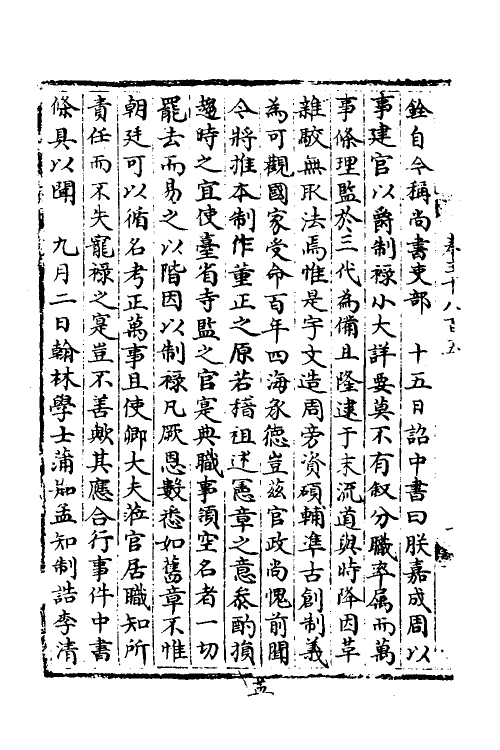 銓自今稱尚書吏部　十五日詔中書曰朕嘉成周以
事建官以爵制祿小大詳要莫不有叙分職率属而萬
事條理監於三代為備且隆逮于末流道與時降因革
雜駁無取法焉惟是宇文造周旁資碩輔準古創制義
為可觀國家受命百年四海承德豈茲官政尚愧前聞
今將推本制作董正之原若稽祖述憲章之意叅酌損
趨時之宜使臺省寺監之官寔典職事領空名者一切
罷去而易之以階因以制祿凡厥恩數悉如舊章不惟
朝廷可以循名考正萬事且使卿大夫涖官居職知所
責任而不失寵祿之寔豈不善歟其應合行事件中書
條具以聞　九月二日翰林學士蒲知孟知制誥李清
卷五千八百五
益